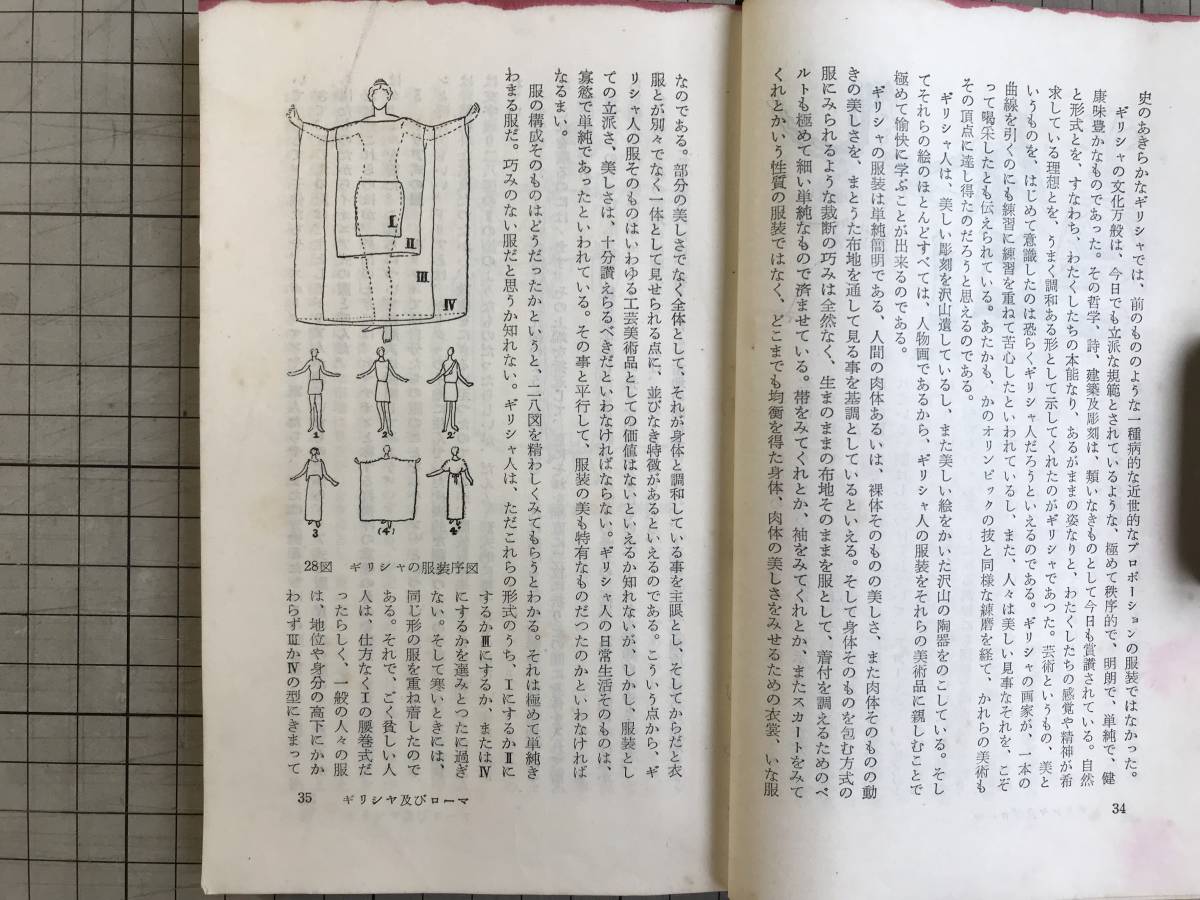 史のあきらかなギリシャでは、前のもののような一種病的な近世的なプロポーションの服装ではなかった。
ギリシャの文化万般は、今日でも立派な規範とされているような、極めて秩序的で、明朗で、単純で、健
康味豊かなものであった。その哲学、詩、建築及彫刻は、類いなきものとして今日も賞讃されている。自然
と形式とを、すなわち、わたくしたちの本能なり、あるがままの姿なりと、わたくしたちの感覚や精神が希
求している理想とを、うまく調和ある形として示してくれたのがギリシャであつた。芸術というもの、美と
いうものを、はじめて意識したのは恐らくギリシャ人だろうといえるのである。ギリシャの画家が、一本の
曲線を引くのにも練習に練習を重ねて苦心したといわれているし、また、人々は美しい見事なそれを、こぞ
って喝采したとも伝えられている。あたかも、かのオリンピックの技と同様な練磨を経て、かれらの美術も
その頂点に達し得たのだろうと思えるのである。
ギリシャ人は、美しい彫刻を沢山遺しているし、また美しい絵をかいた沢山の陶器をのこしている。そし
てそれらの絵のほとんどすべては、人物画であるから、ギリシャ人の服装をそれらの美術品に親しむことで
極めて愉快に学ぶことが出来るのである。
ギリシャの服装は単純簡明である、人間の肉体あるいは、裸体そのものの美しさ、また肉体そのものの動
きの美しさを、まとうた布地を通して見る事を基調としているといえる。そして身体そのものを包む方式の
服にみられるような裁断の巧みは全然なく、生まのままの布地そのままを服として、着付を調えるためのベ
ルトも極めて細い単純なもので済ませている。帯をみてくれとか、袖をみてくれとか、またスカートをみて
くれとかいう性質の服装ではなく、どこまでも均衡を得た身体、肉体の美しさをみせるための衣裳、いな服
34
なのである。部分の美しさでなく全体として、それが身体と調和している事を主眼とし、そしてからだと衣
服とが別々でなく一体として見せられる点に、並びなき特徴があるといえるのである。こういう点から、ギ
リシャ人の服そのものはいわゆる工芸美術品としての価値はないといえるか知れないが、しかし、服装とし
ての立派さ、美しさは、十分讃えらるべきだといわなければならない。ギリシャ人の日常生活そのものは、
寡慾で単純であったといわれている。その事と平行して、服装の美も特有なものだつたのかといわなければ
なるまい。
服の構成そのものはどうだったかというと、二八図を精わしくみてもらうとわかる。それは極めて単純き
わまる服だ。巧みのない服だと思うか知れない。ギリシャ人は、ただこれらの形式のうち、ⅠにするかⅡに
するかⅢにするか、またはⅣ
にするかを選みとつたに過ぎ
ない。そして寒いときには、
同じ形の服を重ね着したので
ある。それで、ごく貧しい人
人は、仕方なくⅠの腰巻式だ
ったらしく、一般の人々の服
は、地位や身分の高下にかか
わらずⅢかⅣの型にきまって
Ⅰ
Ⅱ
Ⅲ
Ⅳ
1
2
2'
3
(4)
4'
28図 ギリシャの服装序図
35 ギリシヤ及びローマ